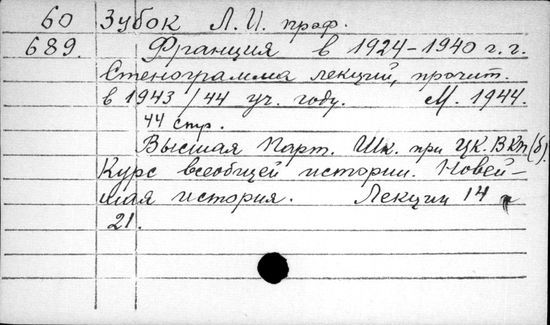 60 Зубок Л. И. проф.
689. Франция в 1924-1940 г.г.
Стенограмма лекций, прочит.
в 1943/44 уч. году. М. 1944.
44 стр.
Высшая Парт. Шк. при ЦК. ВКП(б).
Курс всеобщей истории. Новей-
шая история. Лекции 14 и
21.